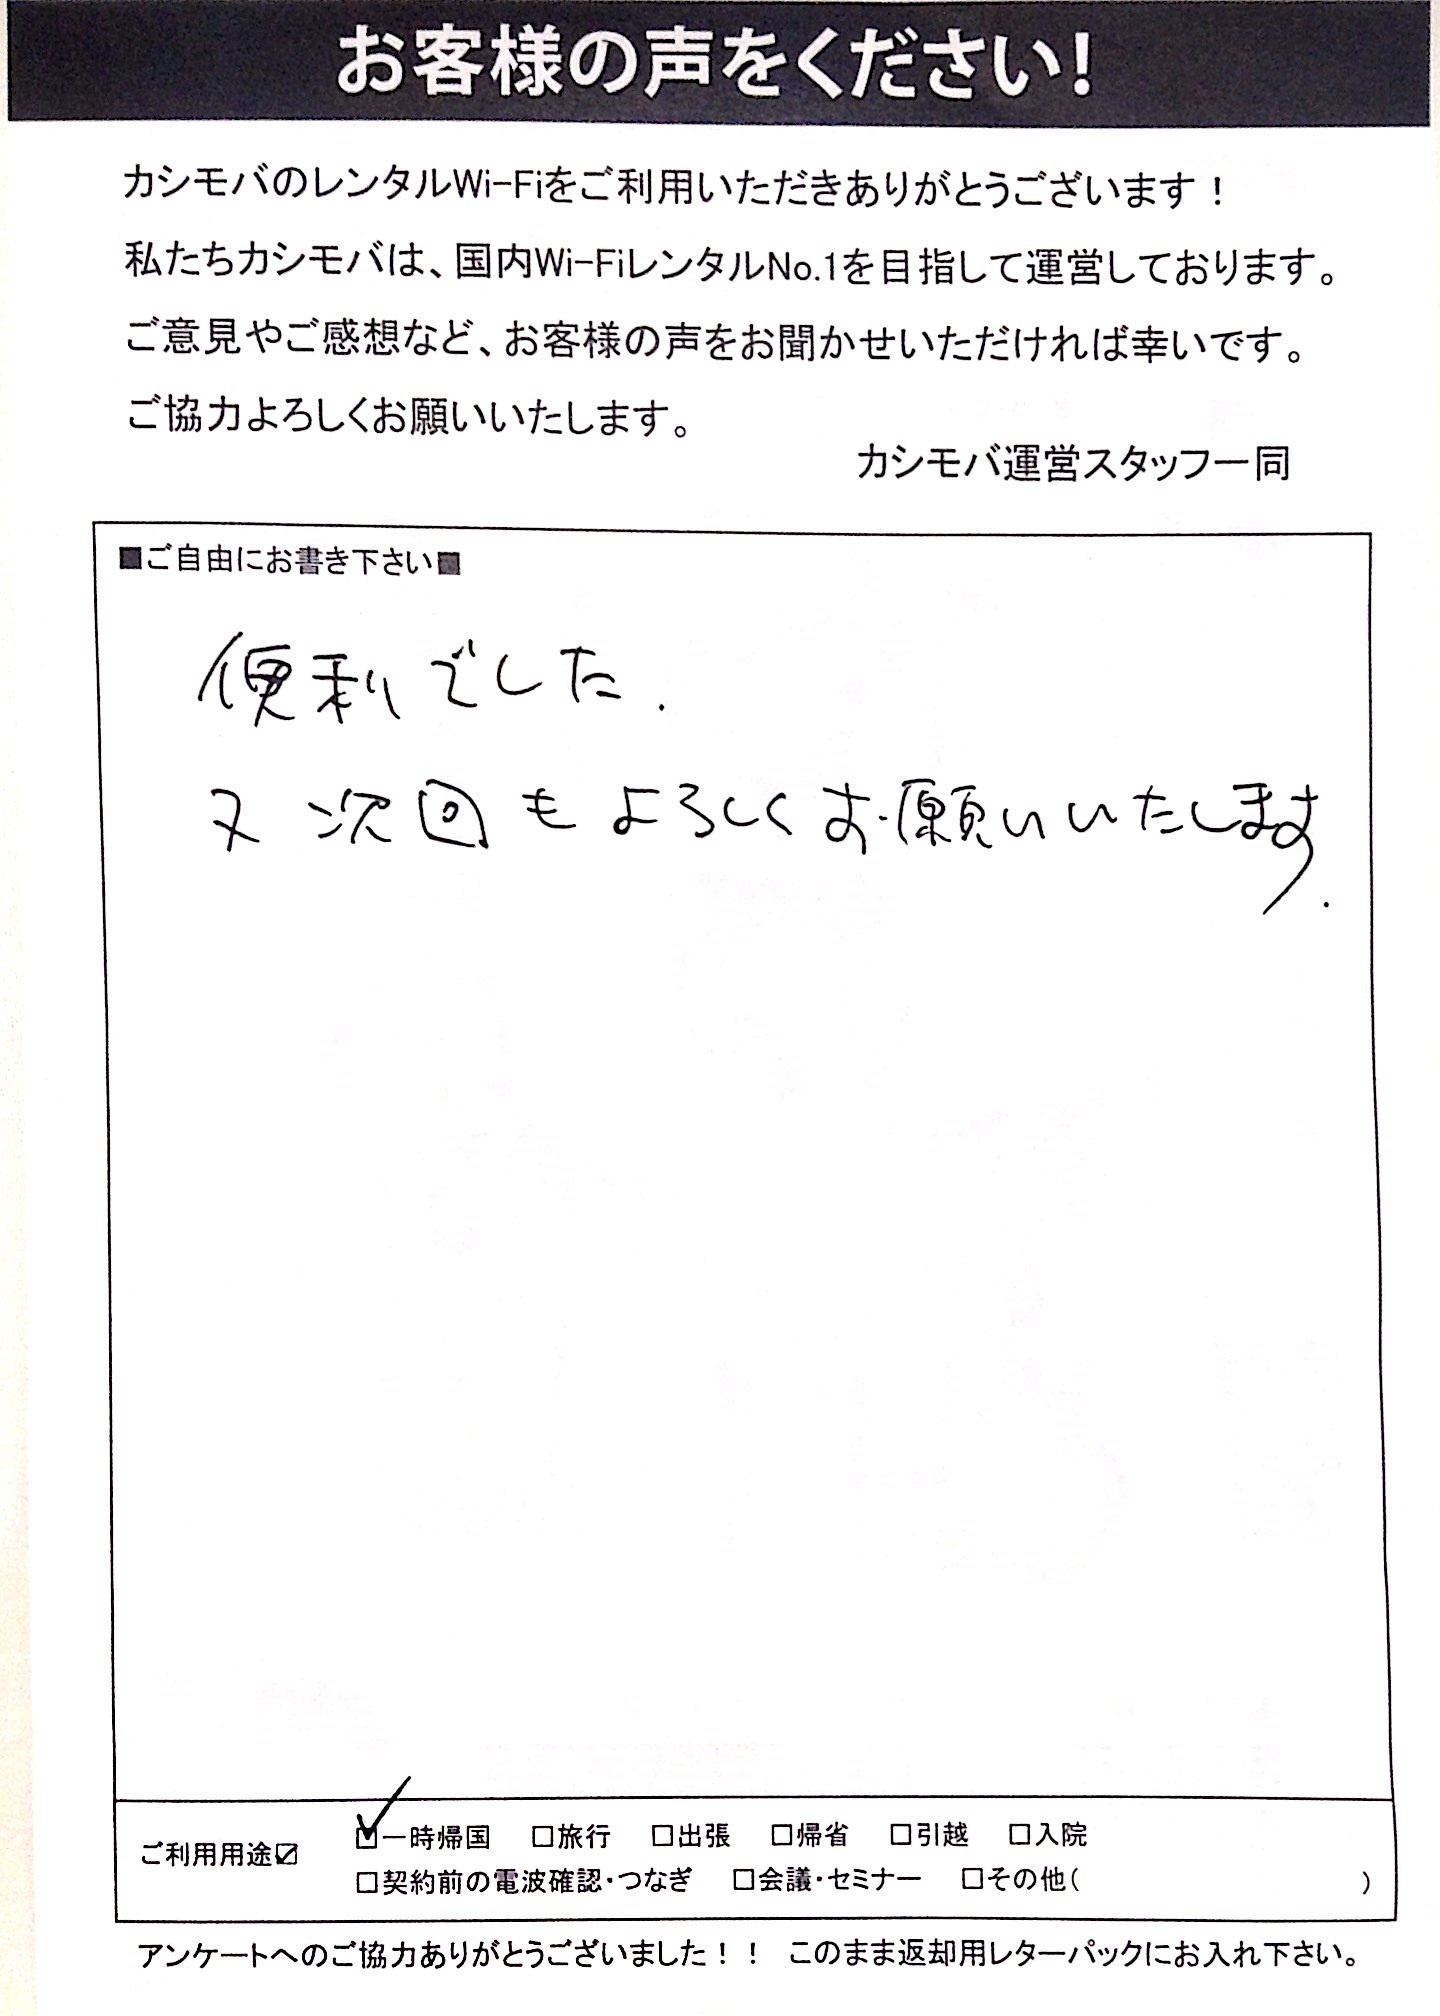 お客様の声をください!
カシモバのレンタルWi-Fiをご利用いただきありがとうございます！
私たちカシモバは、国内Wi-FiレンタルNo.1を目指して運営しております。
ご意見やご感想など、お客様の声をお聞かせいただければ幸いです。
ご協力よろしくお願いいたします。
カシモバ運営スタッフ一同
■ご自由にお書き下さい■
便利でした.
又次回もよろしくお願いいたします.
ご利用用途☑ ☑一時帰国 □旅行 □出張 □帰省 □引越 □入院
□契約前の電波確認・つなぎ □会議・セミナー □その他( )
アンケートへのご協力ありがとうございました！！ このまま返却用レターパックにお入れ下さい。